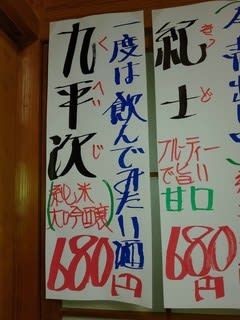 一度は飲んでみたい酒
九平次
くへいじ
純米
大吟醸
680円
紀土
きっど
フルーティー
で旨い
甘口
680円